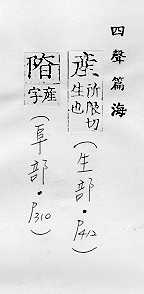 四聲篇海
產 所限切
生也
(生部·P412)
產
字
(阜部·P310)